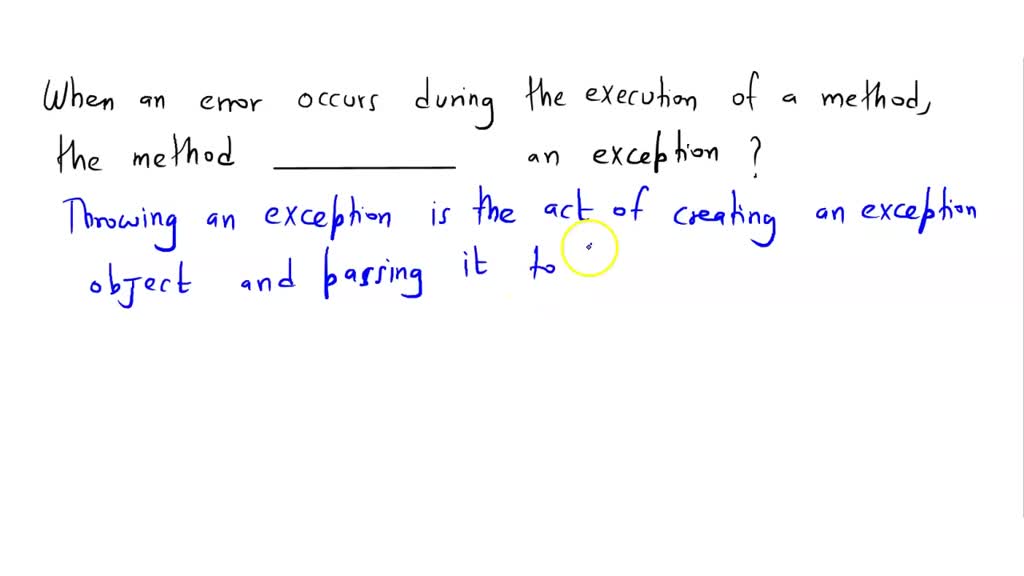 When an error occurs during the execution of a method,
the method __________ an exception ?
Throwing an exception is the act of creating an exception
object and passing it to